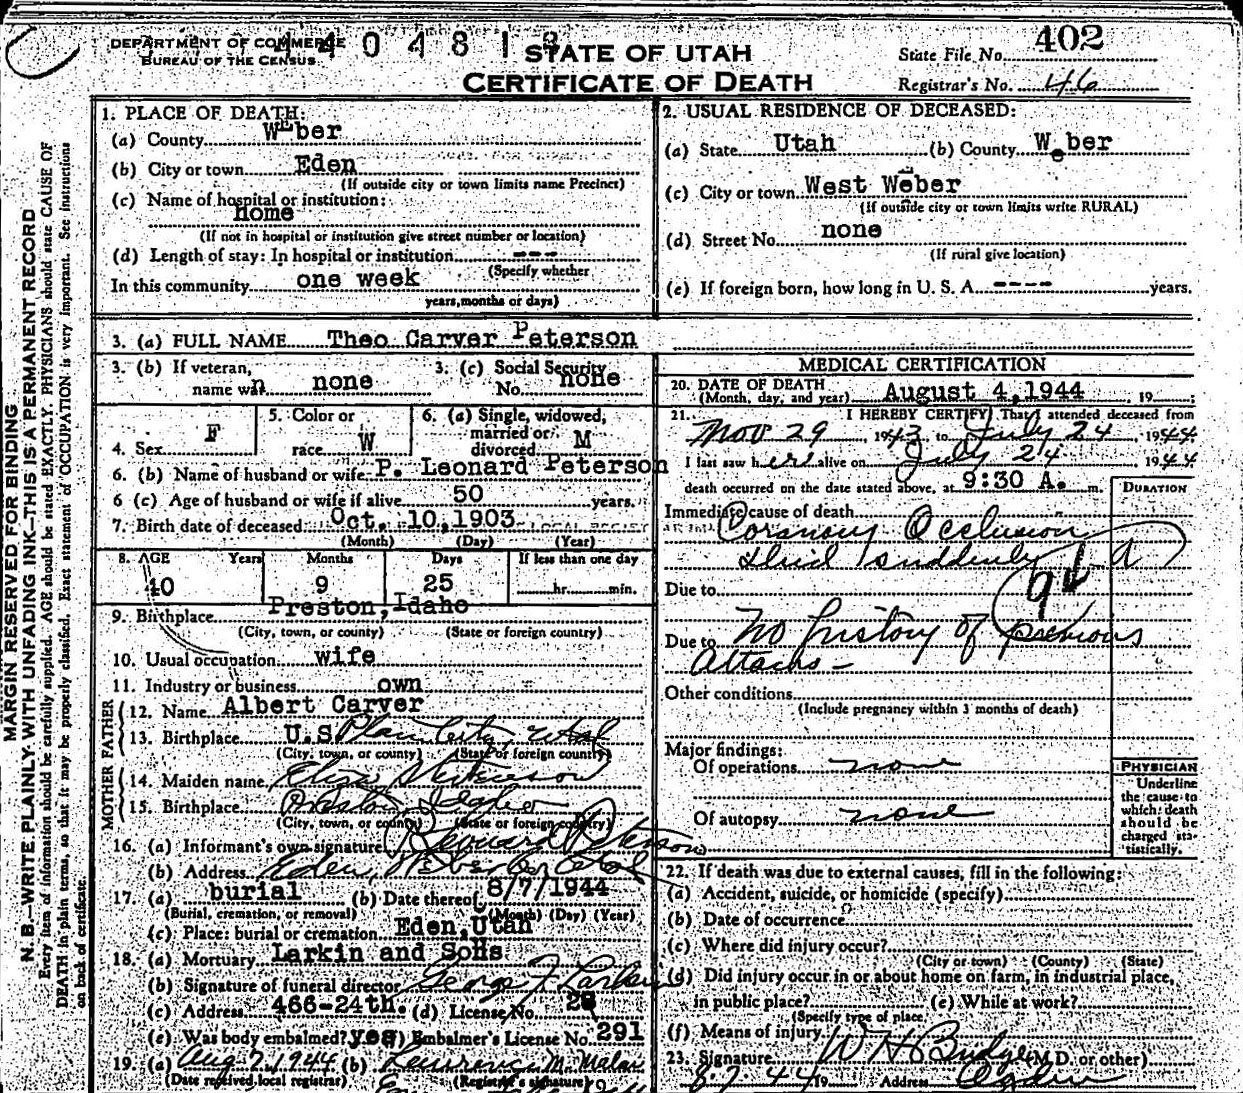 DEPARTMENT OF COMMERCE
BUREAU OF THE CENSUS
STATE OF UTAH
CERTIFICATE OF DEATH
State File No. 402
Registrar's No. 46
MARGIN RESERVED FOR BINDING
N. B.—WRITE PLAINLY WITH UNFADING INK—THIS IS A PERMANENT RECORD
Every item of information should be carefully supplied. AGE should be stated EXACTLY. PHYSICIANS should state CAUSE OF
DEATH in plain terms, so that it may be properly classified. Exact statement of OCCUPATION is very important. See instructions
on back of certificate.
1. PLACE OF DEATH:
(a) County Weber
(b) City or town Eden
(If outside city or town limits name Precinct)
(c) Name of hospital or institution:
home
(If not in hospital or institution give street number or location)
(d) Length of stay: In hospital or institution ---
(Specify whether
In this community one week
years, months or days)
2. USUAL RESIDENCE OF DECEASED:
(a) State Utah (b) County Weber
(c) City or town West Weber
(If outside city or town limits write RURAL)
(d) Street No. none
(If rural give location)
(e) If foreign born, how long in U. S. A. ---- years.
3. (a) FULL NAME Theo Carver Peterson
3. (b) If veteran,
name war none
3. (c) Social Security
No. none
4. Sex F
5. Color or
race W
6. (a) Single, widowed,
married or
divorced M
6. (b) Name of husband or wife P. Leonard Peterson
6 (c) Age of husband or wife if alive 50 years.
7. Birth date of deceased Oct. 10, 1903
(Month) (Day) (Year)
8. AGE Years Months Days If less than one day
40 9 25 hr. min.
9. Birthplace Preston, Idaho
(City, town, or county) (State or foreign country)
10. Usual occupation wife
11. Industry or business own
FATHER
12. Name Albert Carver
13. Birthplace U.S. Plain City, Utah
(City, town, or county) (State or foreign country)
MOTHER
14. Maiden name Eliza
15. Birthplace Preston, Idaho
(City, town, or county) (State or foreign country)
16. (a) Informant's own signature Leonard Peterson
(b) Address Eden, Weber Co Utah
17. (a) burial (b) Date thereof 8/7/1944
(Burial, cremation, or removal) (Month) (Day) (Year)
(c) Place: burial or cremation Eden, Utah
18. (a) Mortuary Larkin and Sons
(b) Signature of funeral director George F Larkin
(c) Address 466-24th. (d) License No. 28
(e) Was body embalmed? yes Embalmer's License No. 291
19. (a) Aug 7, 1944 (b) Lawrence M. Malan
(Date received local registrar) (Registrar's signature)
MEDICAL CERTIFICATION
20. DATE OF DEATH
(Month, day, and year) August 4, 1944 19
21. I HEREBY CERTIFY, That I attended deceased from
Nov 29, 1943 to July 24, 1944
I last saw her alive on July 24 1944
death occurred on the date stated above, at 9:30 A. m.
DURATION
Immediate cause of death
Coronary Occlusion
died suddenly
Due to
Due to No history of previous
attacks -
Other conditions
(Include pregnancy within 3 months of death)
Major findings:
Of operations none
Of autopsy none
PHYSICIAN
Underline
the cause to
which death
should be
charged sta-
tistically.
22. If death was due to external causes, fill in the following:
(a) Accident, suicide, or homicide (specify)
(b) Date of occurrence
(c) Where did injury occur?
(City or town) (County) (State)
(d) Did injury occur in or about home on farm, in industrial place,
in public place? (e) While at work?
(Specify type of place)
(f) Means of injury
23. Signature W H Budge (M.D. or other)
8 7 44 19 Address Ogden